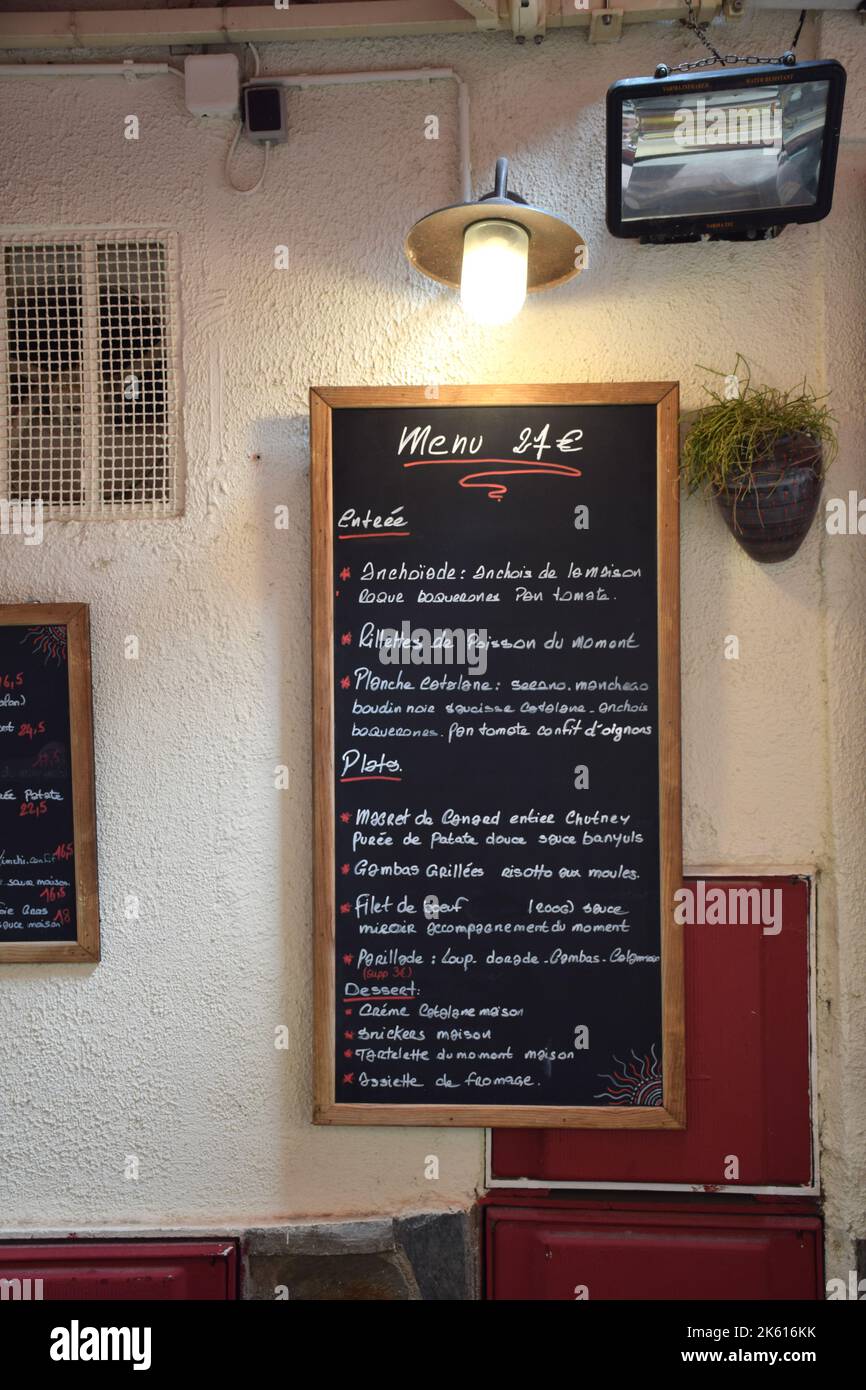 Menu 27€
Entrée
* Anchoïade: anchois de la maison
Roque boquerones Pan tomate.
* Rillettes de Poisson du Moment
* Planche Catalane: serano. manchego
boudin noir saucisse catalane. anchois
boquerones. pan tomate confit d'oignons
Plats.
* Magret de Canard entier Chutney
Purée de Patate douce sauce banyuls
* Gambas Grillées risotto aux moules.
* Filet de boeuf (200G) sauce
miroir accompagnement du moment
* Parillade: Loup. dorade. Gambas. Calamar
(supp 3€)
Dessert:
* Créme Catalane maison
* Snickers maison
* Tartelette du moment maison
* Assiette de fromage.
16,5
24,5
Patate
22,5
16,5
sauce maison.
16,5
Gras
sauce maison 18
VARMA INFRARED
WATER RESISTANT
alamy
Image ID: 2K616KK
www.alamy.com